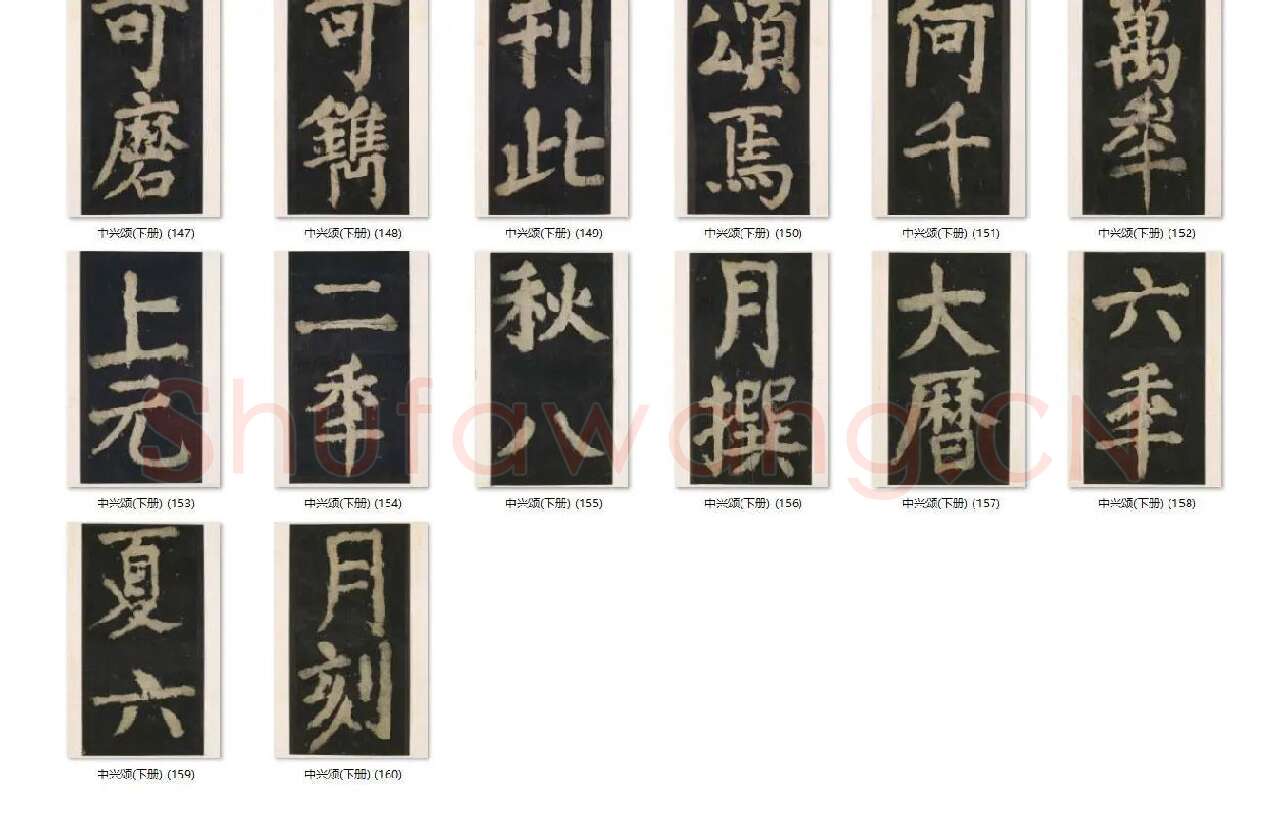 可磨 可鐫 刊此 頌焉 何千 萬秊
中兴颂(下册) (147) 中兴颂(下册) (148) 中兴颂(下册) (149) 中兴颂(下册) (150) 中兴颂(下册) (151) 中兴颂(下册) (152)
上元 二秊 秋八 月撰 大曆 六秊
Shufawang.CN
中兴颂(下册) (153) 中兴颂(下册) (154) 中兴颂(下册) (155) 中兴颂(下册) (156) 中兴颂(下册) (157) 中兴颂(下册) (158)
夏六 月刻
中兴颂(下册) (159) 中兴颂(下册) (160)